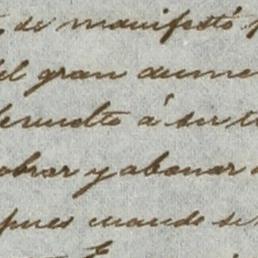 de manifestó
del gran aume
devuelto á ser
obrar y abonar
pues cuando se